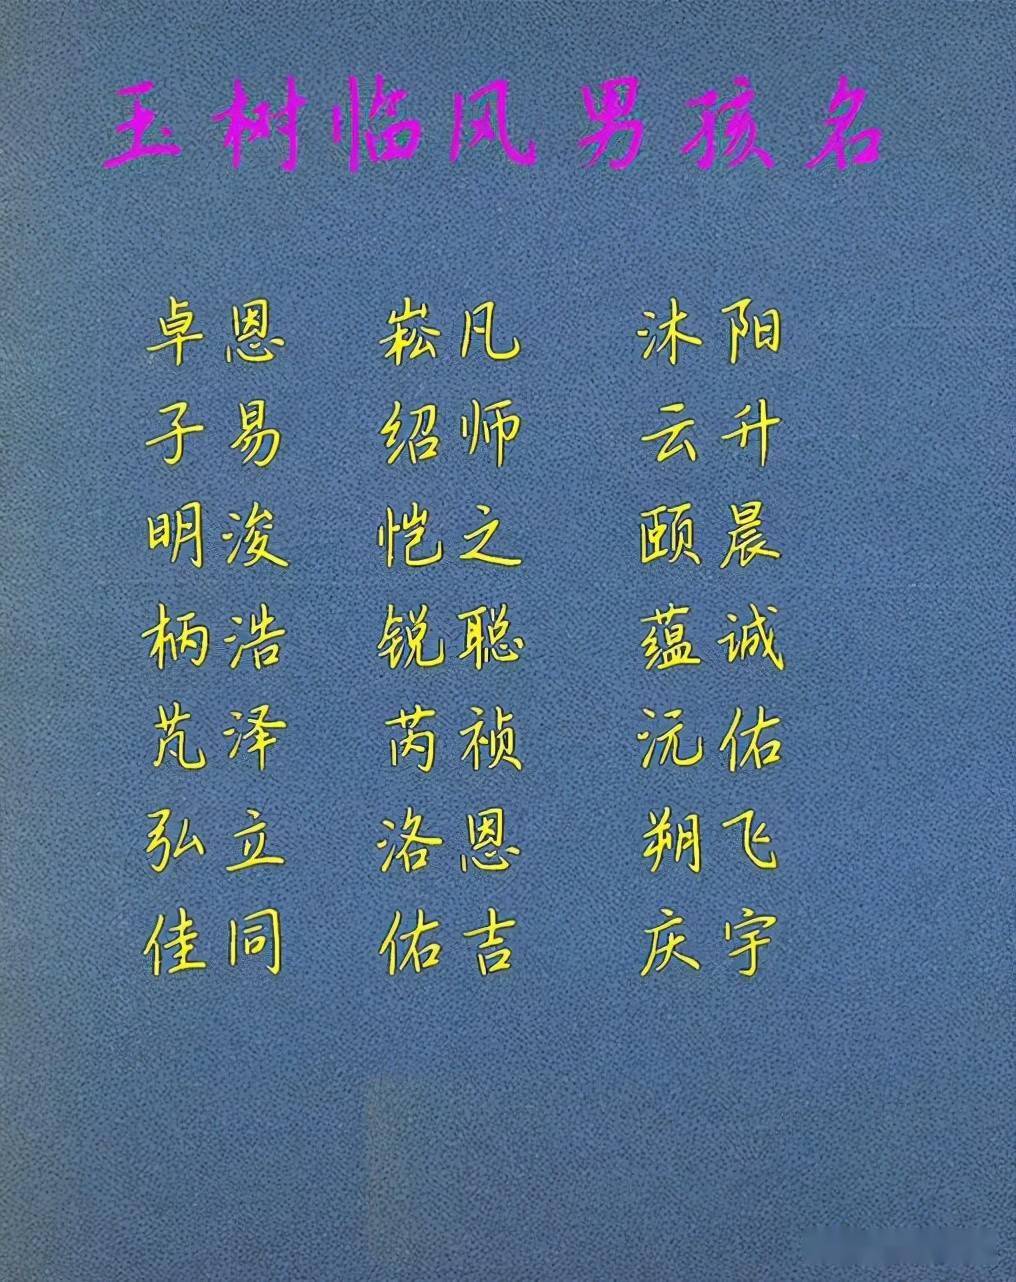 玉树临风男孩名
卓恩 崧凡 沐阳
子易 绍师 云升
明浚 恺之 颐晨
柄浩 锐聪 蕴诚
芃泽 芮祯 沅佑
弘立 洛恩 朔飞
佳同 佑吉 庆宇